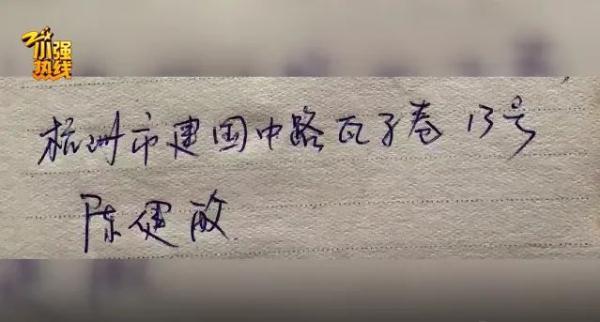 小强热线
杭州市建国中路瓦子巷13号
陈健敏